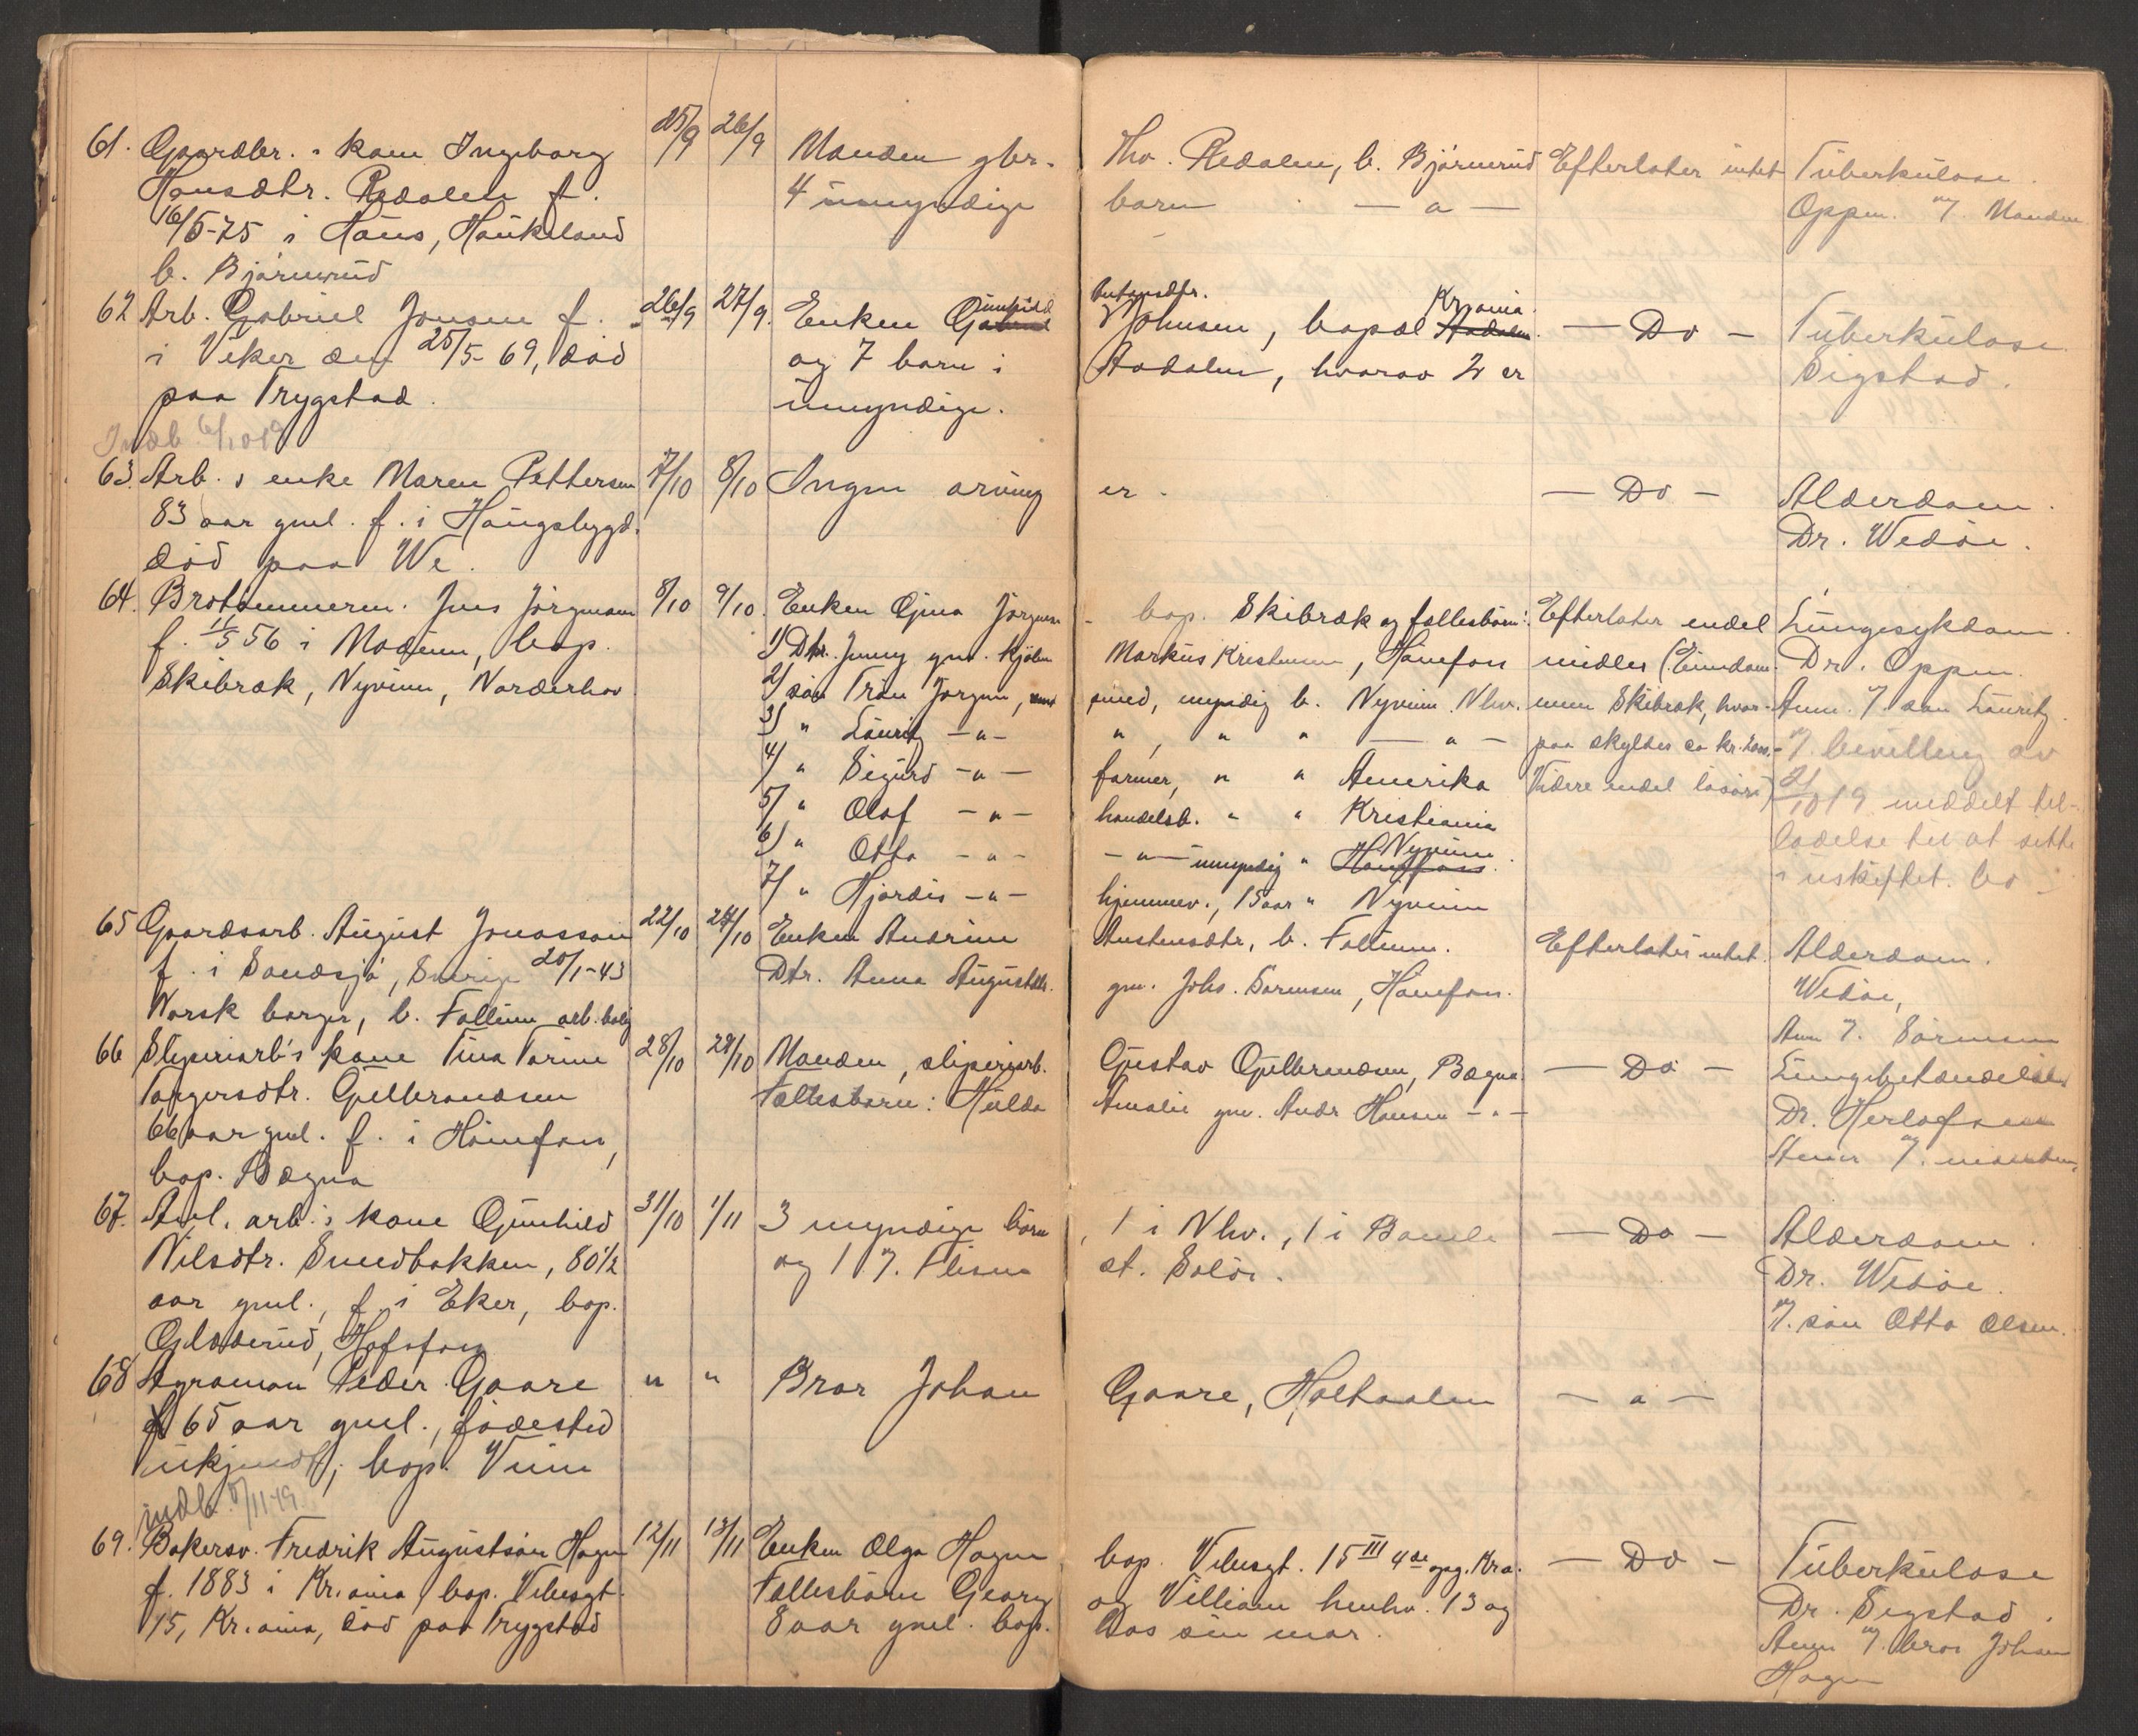 61. Gaardbr. s kone Ingeborg 25/9 26/9 Manden gbr. Thv. Redalen, b. Bjørnerud Efterlater intet Tuberkulose.
Hansdtr. Redalen f. 4 umyndige barn — " — Oppen. v/ Manden
16/6-75 i Haus, Haukeland
b. Bjørnerud
62 Arb. Gabriel Jonsen f. 26/9 27/9. Enken Gunhild Antonsdtr. Johnsen, bopæl Kr.ania — Do — Tuberkulose
i Viker den 25/5-69, død og 7 barn i Aadalen, hvorav 2 er Sigstad.
paa Trygstad. umyndige.
Indb. 6/10 19
63. Arb. s enke Maren Pettersen 7/10 8/10 Ingen arving er. — Do — Alderdom.
83 aar gml. f. i Haugsbygd. Dr. Wedøe.
død paa We.
64. Brotømmerm. Jens Jørgensen 8/10 9/10. Enken Gina Jørgensen bop. Skibræk og fællesbørn: Efterlater endel Lungesykdom.
f. 11/5 56 i Modum, bop. 1) Dtr. Jenny gm. Markus Kristensen, Hønefoss midler (Eiendom- Dr. Oppen.
Skibræk, Nyvinn, Norderhov 2) søn Trøn Jørgen, smed, myndig b. Nyvinn Nhv. men Skibræk, hvor- Anm. v/ søn Lauritz.
3) " Lauritz — " — ", " " — " — paa skyldes ca kr. v/ bevilling av
4) " Sigurd — " — farmer, " " Amerika Videre endel løsøre) 21/10 19 meddelt til-
5) " Olaf — " — handelsb. " " Kristiania ladelse til at sitte
6) " Otto — " — — " — umyndig " Nyvinn i uskiftet bo
7) " Hjørdis — " — hjemmev., 15 aar " Nyvinn
65 Gaardsarb. August Jonasson 22/10 24/10 Enken Andrine Austensdtr, b. Follum. Efterlater intet. Alderdom.
f. i Sandsjø, Sverige 20/1-43 Dtr. Anna Augustdtr. gm. Johs. Sørensen, Hønefoss. Wedøe,
Norsk borger, b. Follum arb.bolig Anm v/ Sørensen
66 Sliperiarb's kone Tina Torine 28/10 29/10 Manden, sliperiarb. Gustav Gulbrandsen, Bægna — Do — Lungebetændelse
Torgersdtr. Gulbrandsen Fællesbarn: Hulda Amalie gm. Andr Hansen — " — Dr. Herlofsen
66 aar gml. f. i Hønefoss, Anm v/ manden
bop. Bægna
67. Avl. arb.'s kone Gunhild 31/10 1/11 3 myndige børn, 1 i Nhv., 1 i Bamle — Do — Alderdom.
Nilsdtr. Smedbakken, 80½ og 1 v/ Flisen st. Solør. Dr. Wedøe.
aar gml., f. i Eker, bop. v/ søn Otto Olsen.
Gladderud, Hofsfoss
68 Agroman Peder Gaare " " Bror Johan Gaare, Holtaalen — " —
65 aar gml., fødested
ukjendt; bop. Vinn
indb. 5/11-19
69. Bakersv. Fredrik Augustsøn Hagen 12/11 13/11 Enken Olga Hagen bop. Vibesgt. 15 III 4de opg. Kra. — Do — Tuberkulose
f. 1883 i Kr.ania, bop. Vibesgt. Fællesbørn Georg og Villiam henhv. 13 og Dr. Sigstad.
15, Kr.ania, død paa Trygstad 8 aar gml. bop. hos sin mor. Anm v/ bror Johan
Hagen